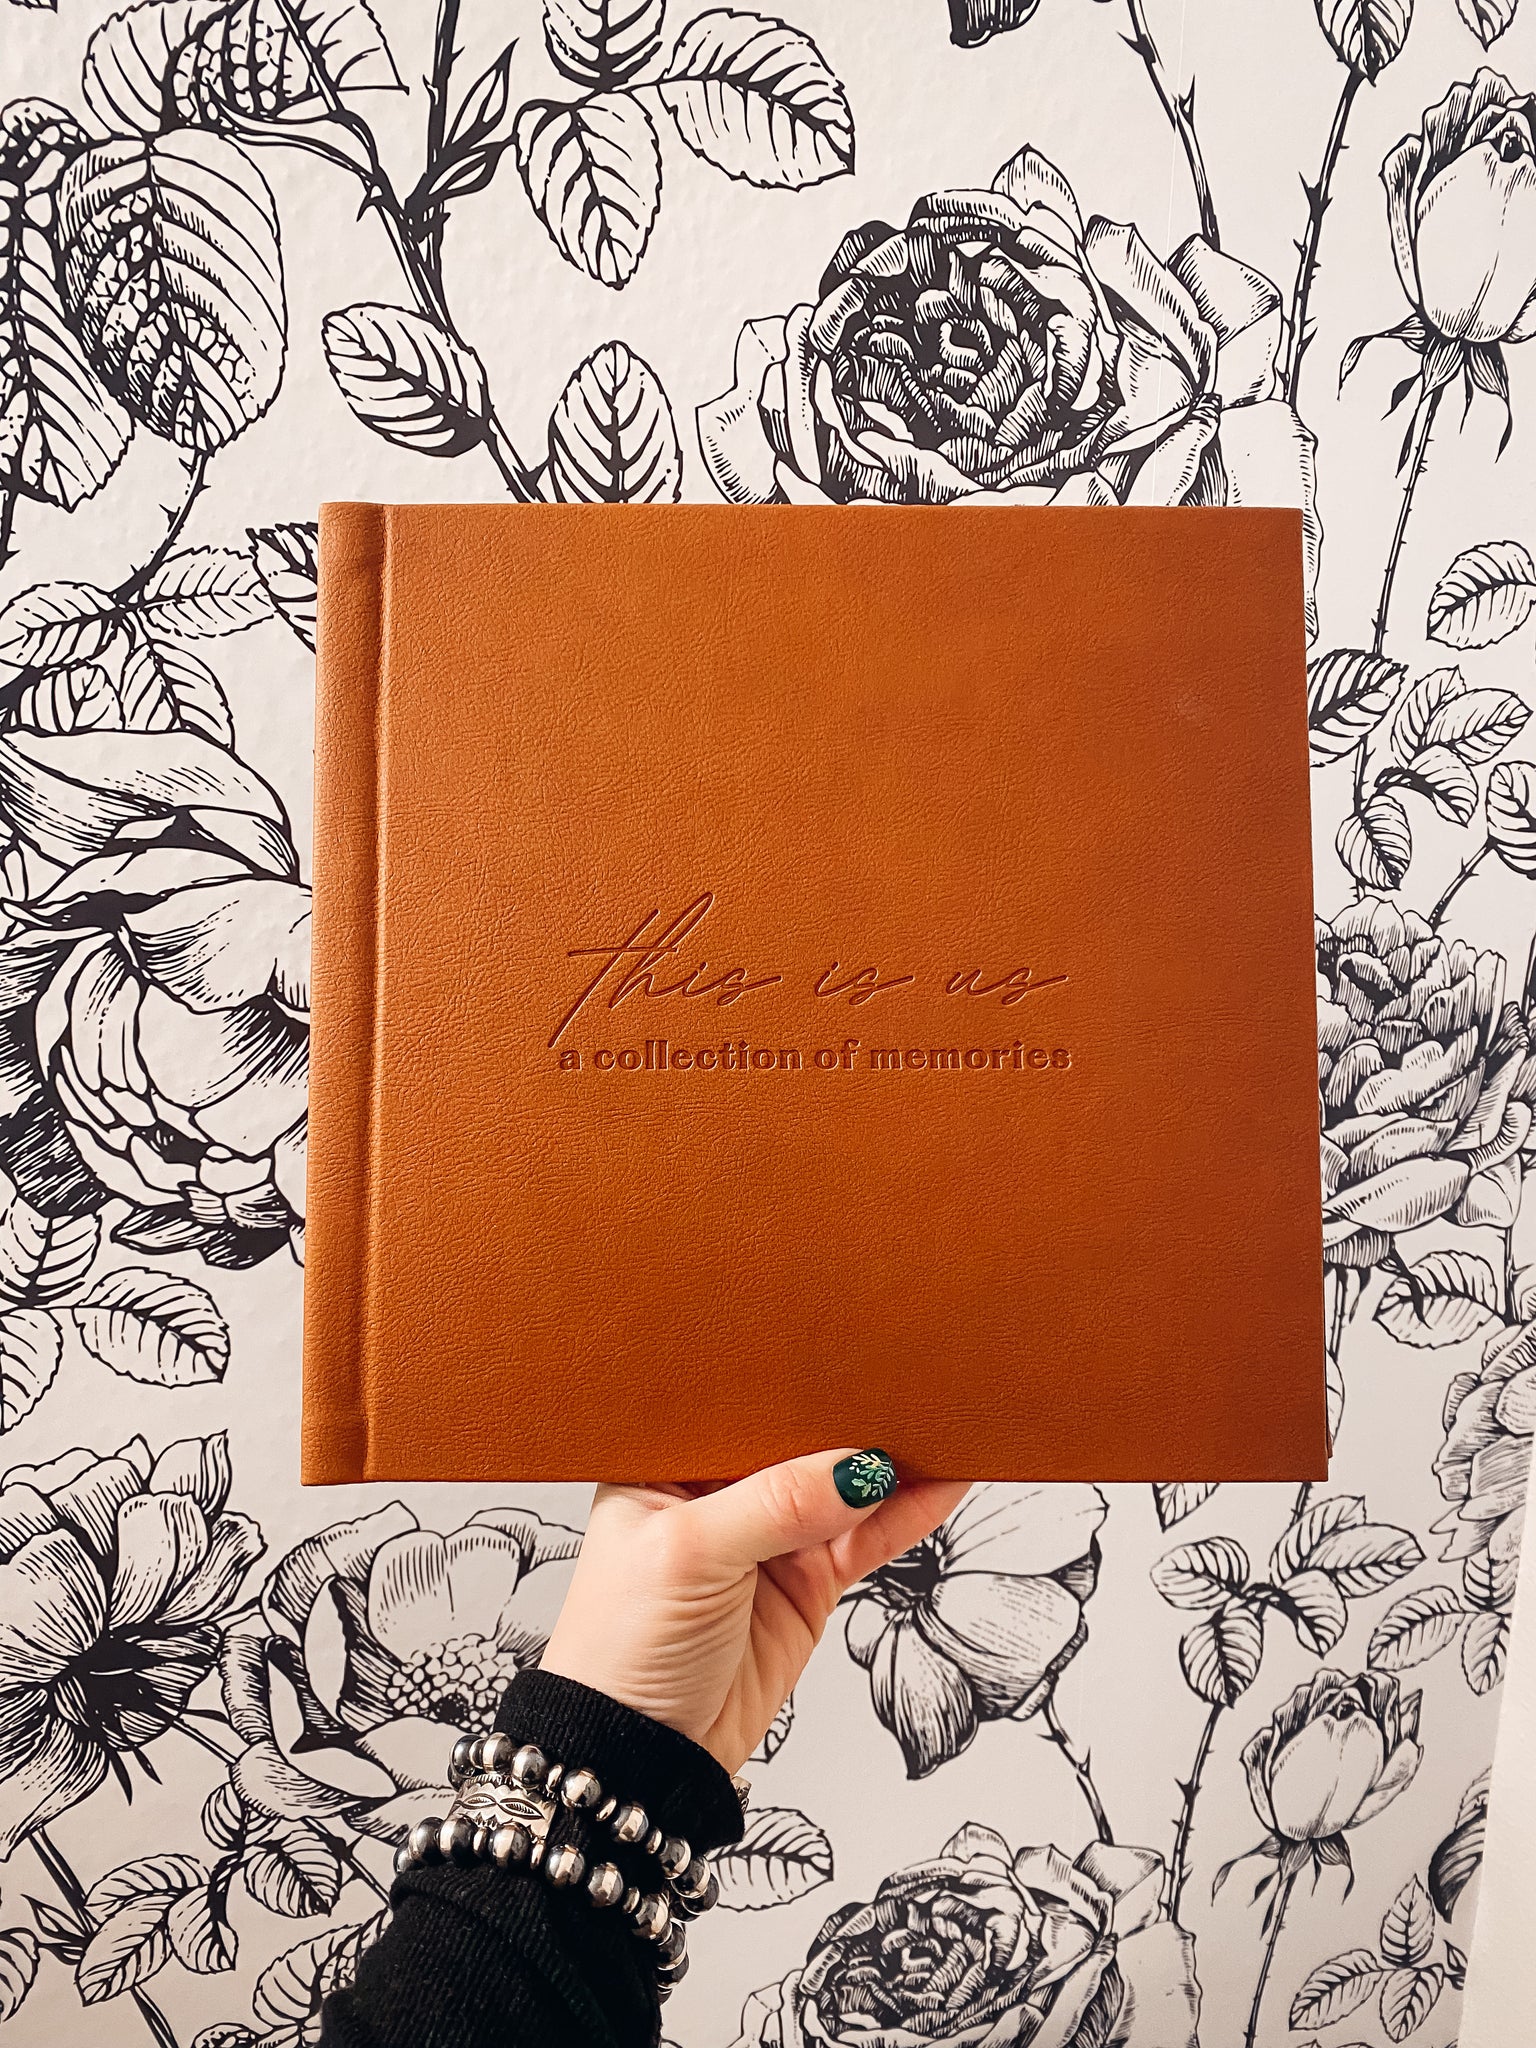 this is us
a collection of memories